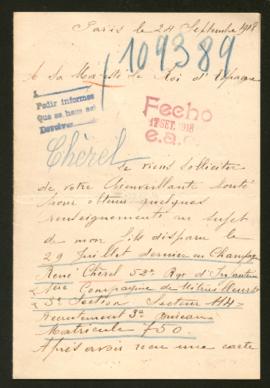 Paris le 24 Septembre 1918
109389
A Sa Majesté le Roi d'Espagne
Pedir informes
Que se haga
Devolver
Fecho
17 SET. 1918
e.a.
Chérel
Je viens solliciter
de votre bienveillante bonté
pour obtenir quelques
renseignements au sujet
de mon fils disparu le
29 Juillet dernier en Champagne
René Chérel 53e Rgt d'Infanterie
1ère Compagnie de Mitrailleurs
3e Section Secteur 114
Recrutement 3e Bureau
Matricule 750
Après avoir reçu une carte